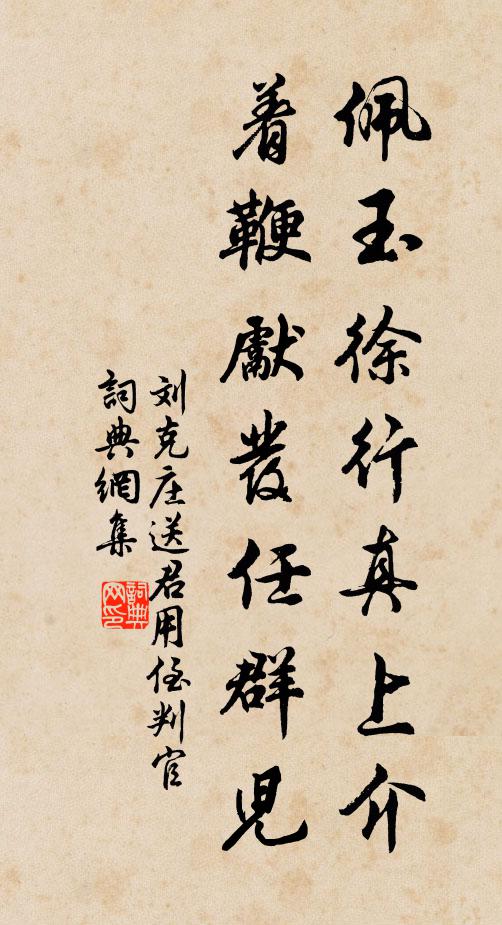 佩玉徐行真上介
着鞭獻發任群児
刘克庄送君用侄判官
詞典網集
詞典
网印